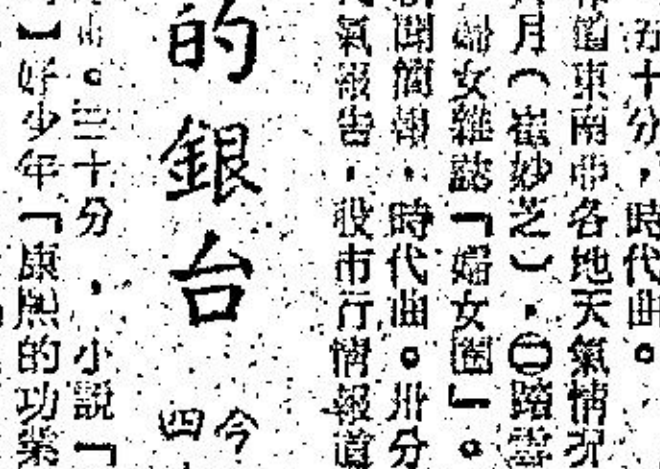 五十分,時代曲。
報道東南亞各地天氣情況
月(崔妙芝)。㊁踏雲
婦女雜誌「婦女圈」。
新聞簡報,時代曲。卅分
天氣報告,股市行情報道
的銀台
今
四
。三十分,小說「
】好少年「康熙的功業